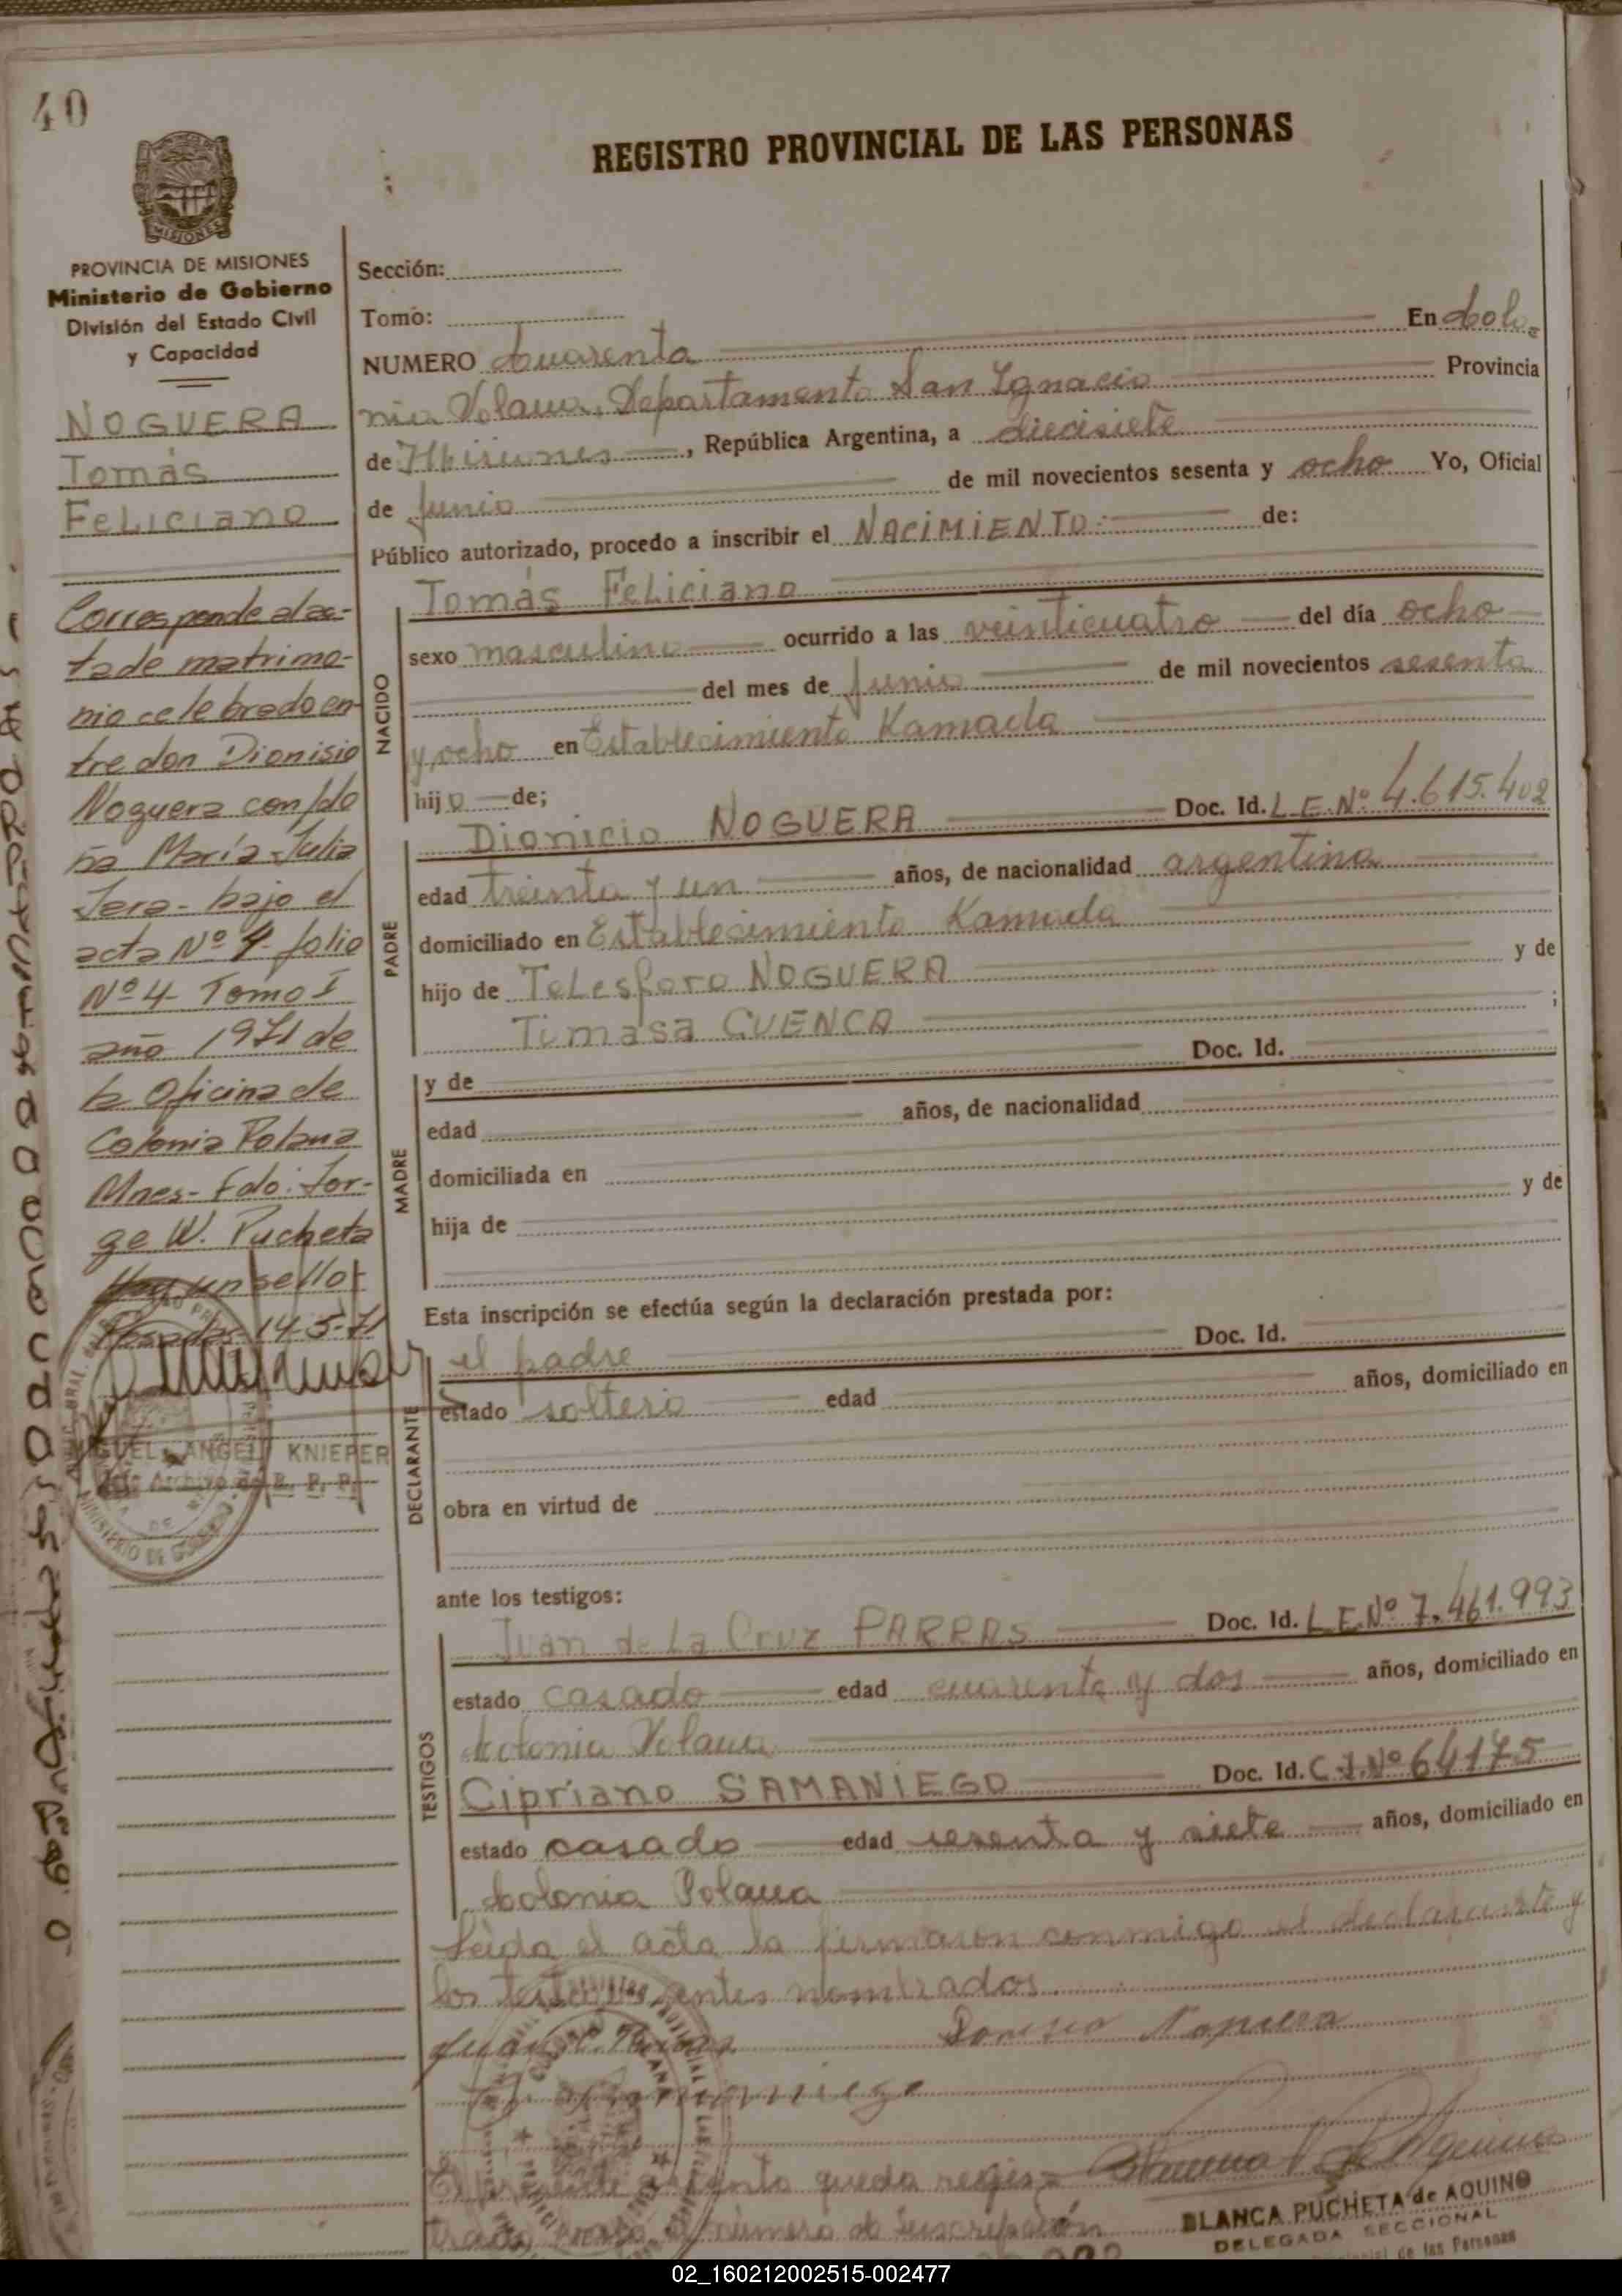 40
REGISTRO PROVINCIAL DE LAS PERSONAS
MISIONES
PROVINCIA DE MISIONES
Ministerio de Gobierno
División del Estado Civil
y Capacidad
NOGUERA
Tomás
Feliciano
Corresponde al ac-
ta de matrimo-
nio celebrado en-
tre don Dionisio
Noguera con do
ña María Julia
Jara - bajo el
acta Nº 4 folio
Nº 4 - Tomo I
año 1971 de
la Oficina de
Colonia Polana
Mnes - Fdo: Jor-
ge W. Pucheta
Hay un sello -
Posadas 14-5-71
MIGUEL ANGEL KNIEPER
Jefe Archivo de R. P. P.
Sección:
Tomo:
NUMERO Cuarenta En Colo
nia Polana, Departamento San Ignacio Provincia
de Misiones, República Argentina, a diecisiete
de Junio de mil novecientos sesenta y ocho Yo, Oficial
Público autorizado, procedo a inscribir el NACIMIENTO: de:
NACIDO
Tomás Feliciano
sexo masculino ocurrido a las veinticuatro del día ocho
del mes de Junio de mil novecientos sesenta
y ocho en Establecimiento Kamada
hijo de;
PADRE
Dionicio NOGUERA Doc. Id. L.E.Nº 4.615.402
edad treinta y un años, de nacionalidad argentina
domiciliado en Establecimiento Kamada
hijo de Telesforo NOGUERA y de
Timasa CUENCA ;
MADRE
y de Doc. Id.
edad años, de nacionalidad
domiciliada en
hija de y de
Esta inscripción se efectúa según la declaración prestada por:
DECLARANTE
el padre Doc. Id.
estado soltero edad años, domiciliado en
obra en virtud de
ante los testigos:
TESTIGOS
Juan de la Cruz PARRAS Doc. Id. L.E.Nº 7.461.993
estado casado edad cuarenta y dos años, domiciliado en
Colonia Polana
Cipriano SAMANIEGO Doc. Id. C.I.Nº 64175
estado casado edad sesenta y siete años, domiciliado en
Colonia Polana
Leída el acta la firmaron conmigo el declarante y
los nombrados
Dionisio Noguera
El presente queda regis-
trado número de inscripción
BLANCA PUCHETA de AQUINO
DELEGADA SECCIONAL
de las Personas
02_160212002515-002477